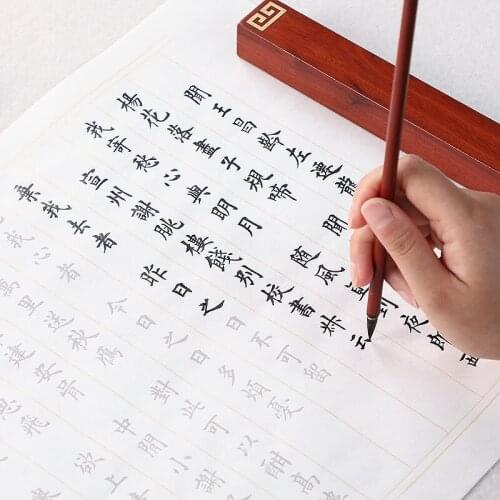 聞王昌齡左遷龍
楊花落盡子規啼 聞
我寄愁心與明月 随風直到夜郎西
宣州謝朓樓餞別校書叔云
棄我去者 昨日之日不可留
我心者 今日之日多煩憂
萬里送秋雁 對此可以酣高
建安骨 中間小謝
思飛 欲上